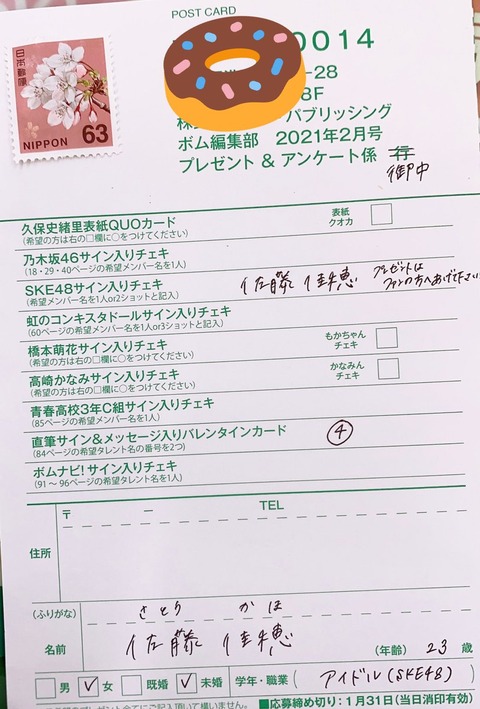 POST CARD
日本郵便
NIPPON 63
0014
-28
8F
パブリッシング
ボム編集部 2021年2月号
プレゼント & アンケート係 行
御中
久保史緒里表紙QUOカード
(希望の方は右の□欄に○をつけてください)
表紙
クオカ
乃木坂46サイン入りチェキ
(18・29・40ページの希望メンバー名を1人)
SKE48サイン入りチェキ
(希望メンバー名を1人or2ショットと記入)
佐藤 佳穂
プレゼントは
ファンの方へあげてください
虹のコンキスタドールサイン入りチェキ
(60ページの希望メンバー名を1人or3ショットと記入)
橋本萌花サイン入りチェキ
(希望の方は右の□欄に○をつけてください)
もかちゃん
チェキ
高崎かなみサイン入りチェキ
(希望の方は右の□欄に○をつけてください)
かなみん
チェキ
青春高校3年C組サイン入りチェキ
(85ページの希望メンバー名を1人)
直筆サイン&メッセージ入りバレンタインカード
(84ページの希望タレント名の番号を2つ)
④
ボムナビ!サイン入りチェキ
(91〜96ページの希望タレント名を1人)
〒 ー TEL
住所
(ふりがな) さとう かほ
名前 佐藤 佳穂 (年齢) 23 歳
男 ✓女 既婚 ✓未婚 学年・職業 ( アイドル(SKE48) )
■応募締め切り:1月31日(当日消印有効)